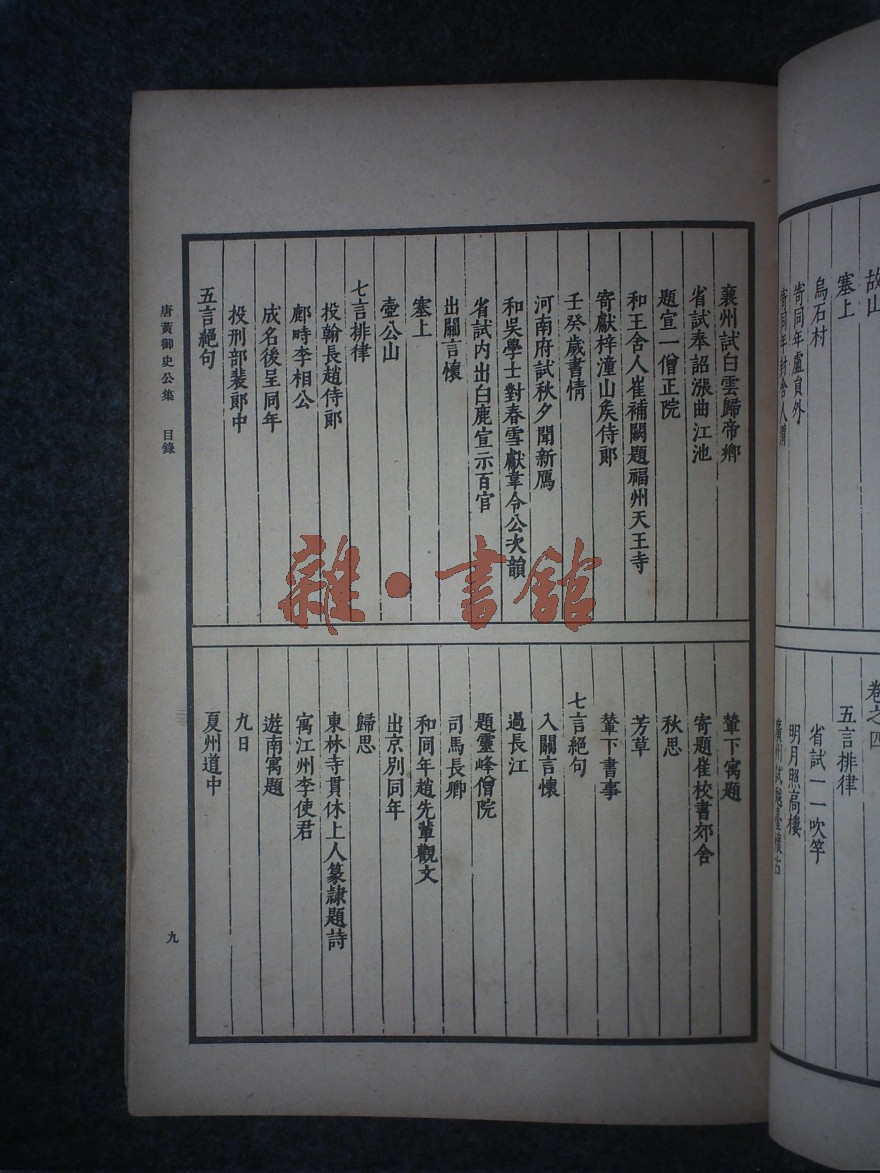 故山
塞上
烏石村
寄同年盧員外
寄同年封舍人渭
卷之四
五言排律
省試一一吹竽
明月照高樓
廣州試越臺懷古
襄州試白雲歸帝鄉
省試奉詔漲曲江池
題宣一僧正院
和王舍人崔補闕題福州天王寺
寄獻梓潼山矦侍郎
壬癸歲書情
河南府試秋夕聞新鴈
和吳學士對春雪獻韋令公次韻
省試內出白鹿宣示百官
出關言懷
塞上
壺公山
七言排律
投翰長趙侍郎
鄜畤李相公
成名後呈同年
投刑部裴郎中
五言絕句
輦下寓題
寄題崔校書郊舍
秋思
芳草
輦下書事
七言絕句
入關言懷
過長江
題靈峰僧院
司馬長卿
和同年趙先輩觀文
出京別同年
歸思
東林寺貫休上人篆隷題詩
寓江州李使君
遊南寓題
九日
夏州道中
唐黃御史公集 目錄
九
雜·書館